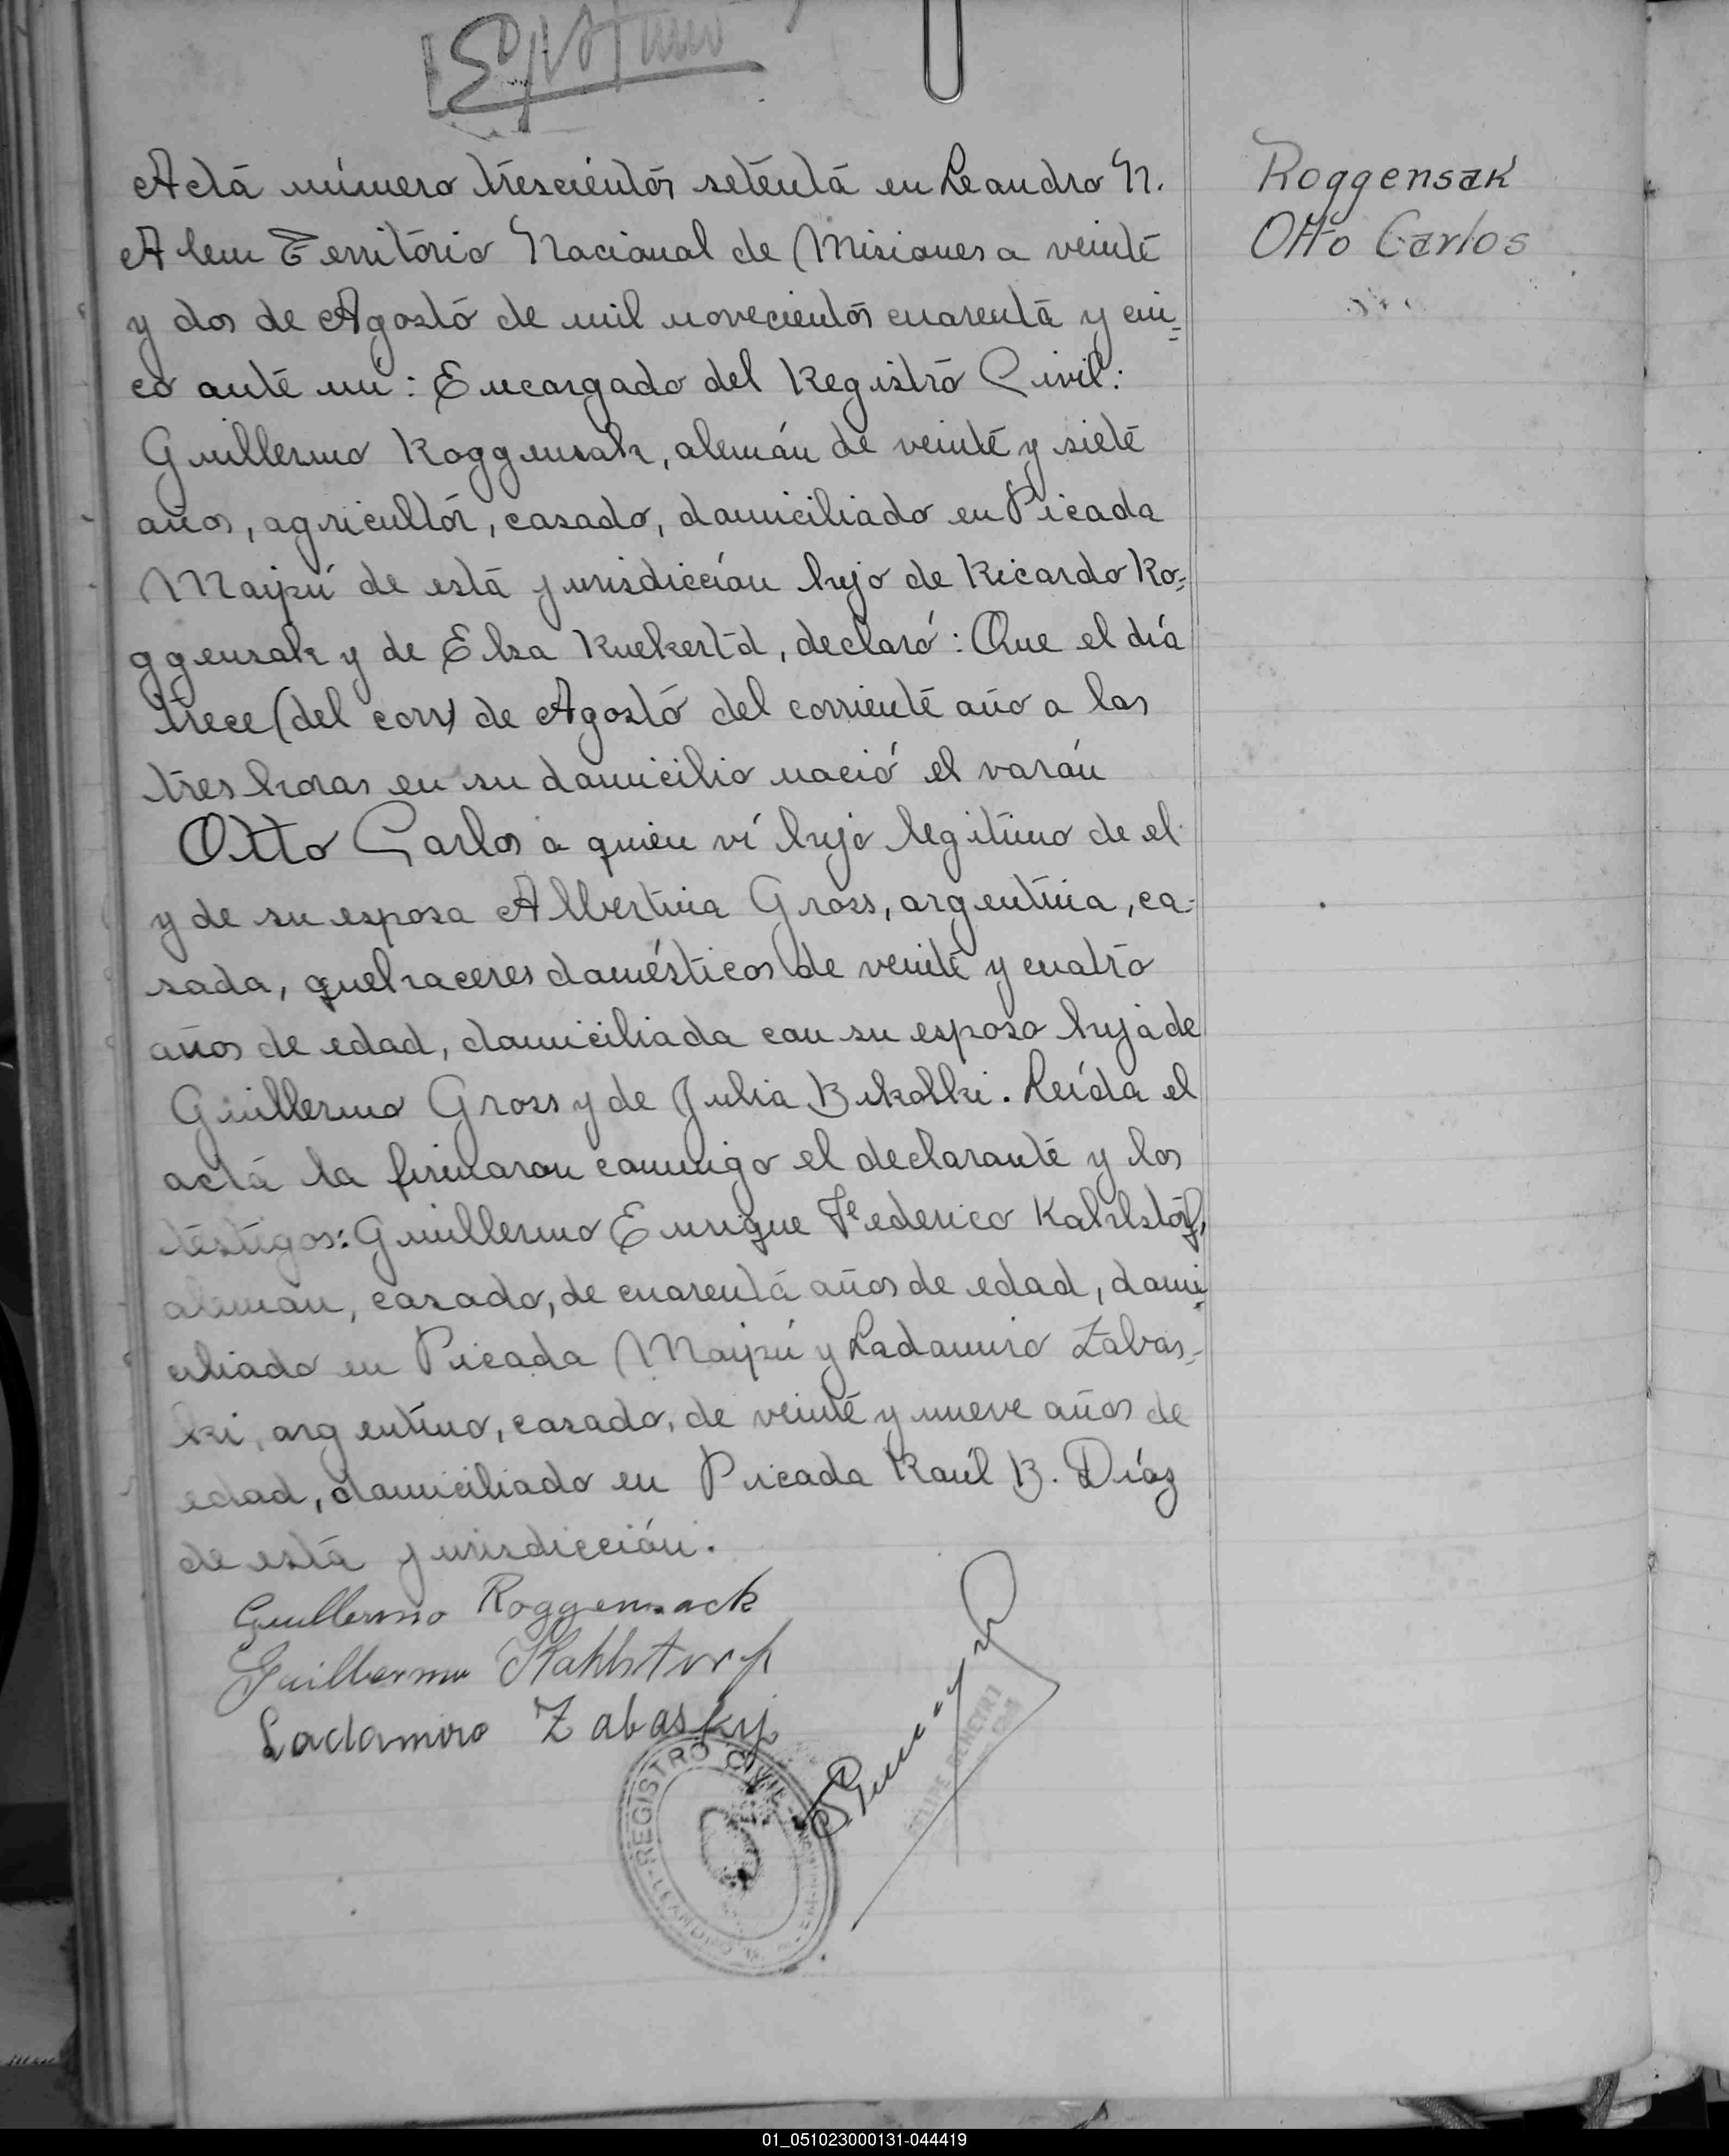 Acta número trescientos setenta en Leandro N.
Alem Territorio Nacional de Misiones a veinte
y dos de Agosto de mil novecientos cuarenta y cin=
co ante mi: Encargado del Registro Civil:
Guillermo Roggensak, alemán de veinte y siete
años, agricultor, casado, domiciliado en Picada
Maipú de esta jurisdicción hijo de Ricardo Ro=
ggensak y de Elsa Kuekertd, declaró: Que el día
trece (del corr) de Agosto del corriente año a las
tres horas en su domicilio nació el varón
Otto Carlos a quien ví hijo legitimo de el
y de su esposa Albertina Gross, argentina, ca-
sada, quehaceres domésticos de veinte y cuatro
años de edad, domiciliada con su esposo hija de
Guillermo Gross y de Julia Bikolki. Leída el
acta la firmaron conmigo el declarante y los
testigos: Guillermo Enrique Federico Kahlstorf,
alemán, casado, de cuarenta años de edad, domi
ciliado en Picada Maipú y Ladamiro Zabas-
ki, argentino, casado, de veinte y nueve años de
edad, domiciliado en Picada Raúl B. Díaz
de esta jurisdicción.
Guillermo Roggensack
Guillermo Kahlstorf
Ladamiro Zabasky
REGISTRO CIVIL
LEANDRO N.
Roggensak
Otto Carlos
01_051023000131-044419